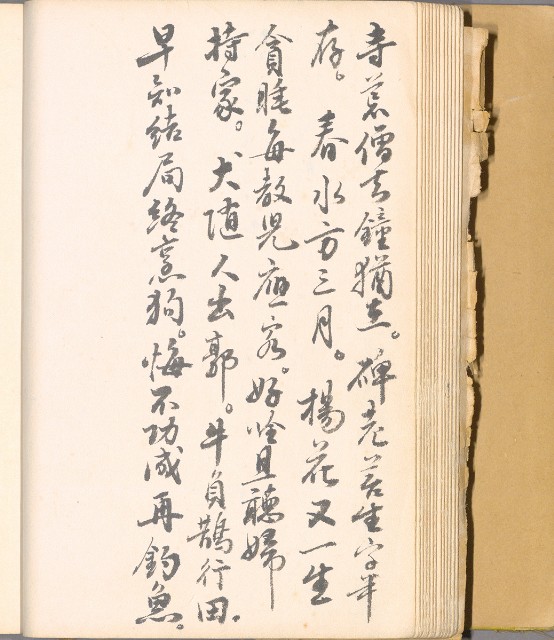 寺荒僧去鐘猶在。碑老苔生字半
存。春水方三月。楊花又一生
貪睡每教兒應客。好吟且聽婦
持家。犬随人出郭。牛負鵲行田。
早知結局終烹狗。悔不功成再釣魚。